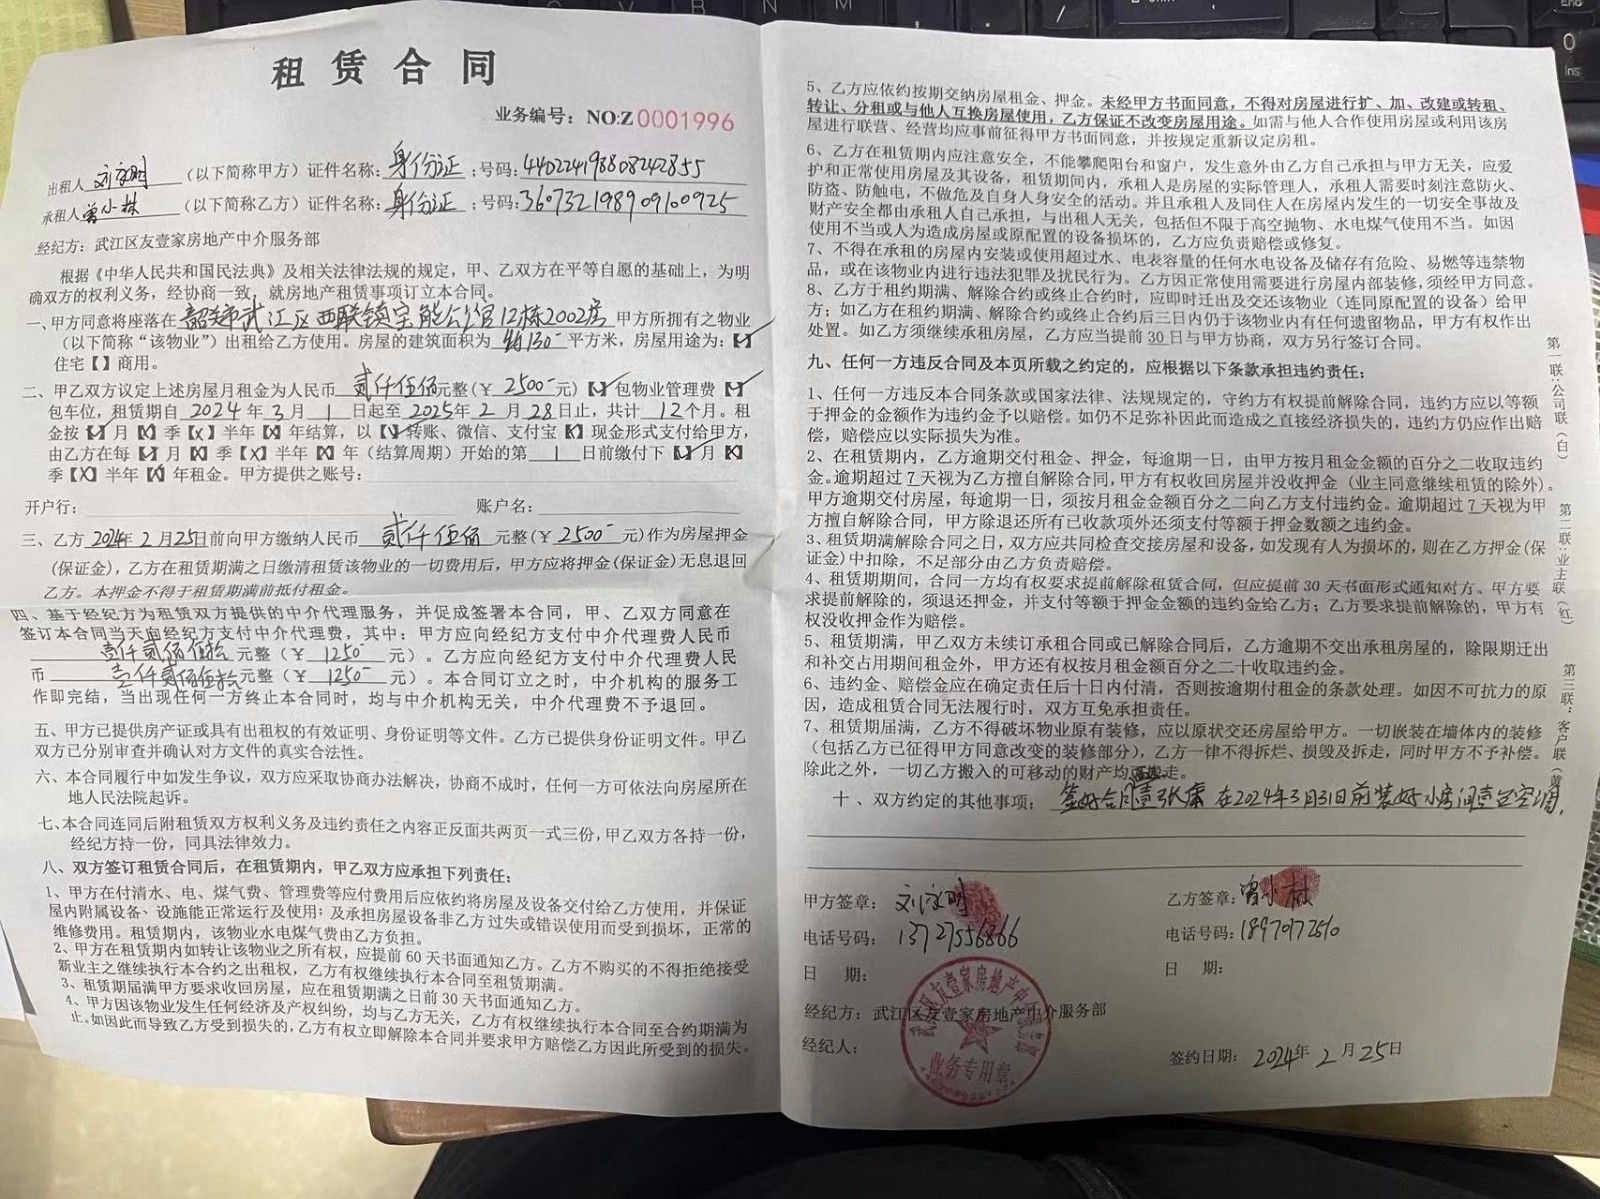 租赁合同
业务编号：NO:Z 0001996
出租人 刘　明 （以下简称甲方）证件名称：身份证；号码：440224198808242855
承租人 曾小林 （以下简称乙方）证件名称：身份证；号码：360732198909100925
经纪方：武江区友壹家房地产中介服务部
根据《中华人民共和国民法典》及相关法律法规的规定，甲、乙双方在平等自愿的基础上，为明
确双方的权利义务，经协商一致，就房地产租赁事项订立本合同。
一、甲方同意将座落在 韶关市武江区西联镇宝能公馆12栋2002房 甲方所拥有之物业
（以下简称“该物业”）出租给乙方使用。房屋的建筑面积为 约130 平方米，房屋用途为：【✓】
住宅【】商用。
二、甲乙双方议定上述房屋月租金为人民币 贰仟伍佰元整（¥ 2500- 元）【✓】包物业管理费【✓】
包车位，租赁期自 2024 年 3 月 1 日起至 2025年 2 月 28日止，共计 12个月。租
金按【✓】月【X】季【X】半年【X】年结算，以【✓】转账、微信、支付宝【X】现金形式支付给甲方，
由乙方在每【✓】月【X】季【X】半年【X】年（结算周期）开始的第 1 日前缴付下【✓】月【X】
季【X】半年【X】年租金。甲方提供之账号：
开户行： 账户名：
三、乙方 2024年 2 月 25日前向甲方缴纳人民币 贰仟伍佰 元整（¥ 2500- 元）作为房屋押金
（保证金），乙方在租赁期满之日缴清租赁该物业的一切费用后，甲方应将押金（保证金）无息退回
乙方。本押金不得于租赁期满前抵付租金。
四、基于经纪方为租赁双方提供的中介代理服务，并促成签署本合同，甲、乙双方同意在
签订本合同当天向经纪方支付中介代理费，其中：甲方应向经纪方支付中介代理费人民币
壹仟贰佰伍拾 元整（¥ 1250- 元）。乙方应向经纪方支付中介代理费人民
币 壹仟贰佰伍拾元整（¥ 1250- 元）。本合同订立之时，中介机构的服务工
作即完结，当出现任何一方终止本合同时，均与中介机构无关，中介代理费不予退回。
五、甲方已提供房产证或具有出租权的有效证明、身份证明等文件。乙方已提供身份证明文件。甲乙
双方已分别审查并确认对方文件的真实合法性。
六、本合同履行中如发生争议，双方应采取协商办法解决，协商不成时，任何一方可依法向房屋所在
地人民法院起诉。
七、本合同连同后附租赁双方权利义务及违约责任之内容正反面共两页一式三份，甲乙双方各持一份，
经纪方持一份，同具法律效力。
八、双方签订租赁合同后，在租赁期内，甲乙双方应承担下列责任：
1、甲方在付清水、电、煤气费、管理费等应付费用后应依约将房屋及设备交付给乙方使用，并保证
屋内附属设备、设施能正常运行及使用；及承担房屋设备非乙方过失或错误使用而受到损坏，正常的
维修费用。租赁期内，该物业水电煤气费由乙方负担。
2、甲方在租赁期内如转让该物业之所有权，应提前 60 天书面通知乙方。乙方不购买的不得拒绝接受
新业主之继续执行本合约之出租权，乙方有权继续执行本合同至租赁期满。
3、租赁期届满甲方要求收回房屋，应在租赁期满之日前 30 天书面通知乙方。
4、甲方因该物业发生任何经济及产权纠纷，均与乙方无关，乙方有权继续执行本合同至合约期满为
止。如因此而导致乙方受到损失的，乙方有权立即解除本合同并要求甲方赔偿乙方因此所受到的损失。
5、乙方应依约按期交纳房屋租金、押金。未经甲方书面同意，不得对房屋进行扩、加、改建或转租、
转让、分租或与他人互换房屋使用，乙方保证不改变房屋用途。如需与他人合作使用房屋或利用该房
屋进行联营、经营均应事前征得甲方书面同意，并按规定重新议定房租。
6、乙方在租赁期内应注意安全，不能攀爬阳台和窗户，发生意外由乙方自己承担与甲方无关，应爱
护和正常使用房屋及其设备，租赁期间内，承租人是房屋的实际管理人，承租人需要时刻注意防火、
防盗、防触电，不做危及自身人身安全的活动。并且承租人及同住人在房屋内发生的一切安全事故及
财产安全都由承租人自己承担，与出租人无关，包括但不限于高空抛物、水电煤气使用不当。如因
使用不当或人为造成房屋或原配置的设备损坏的，乙方应负责赔偿或修复。
7、不得在承租的房屋内安装或使用超过水、电表容量的任何水电设备及储存有危险、易燃等违禁物
品，或在该物业内进行违法犯罪及扰民行为。乙方因正常使用需要进行房屋内部装修，须经甲方同意。
8、乙方于租约期满、解除合约或终止合约时，应即时迁出及交还该物业（连同原配置的设备）给甲
方；如乙方在租约期满、解除合约或终止合约后三日内仍于该物业内有任何遗留物品，甲方有权作出
处置。如乙方须继续承租房屋，乙方应当提前 30 日与甲方协商，双方另行签订合同。
九、任何一方违反合同及本页所载之约定的，应根据以下条款承担违约责任：
1、任何一方违反本合同条款或国家法律、法规规定的，守约方有权提前解除合同，违约方应以等额
于押金的金额作为违约金予以赔偿。如仍不足弥补因此而造成之直接经济损失的，违约方仍应作出赔
偿，赔偿应以实际损失为准。
2、在租赁期内，乙方逾期交付租金、押金，每逾期一日，由甲方按月租金金额的百分之二收取违约
金。逾期超过 7 天视为乙方擅自解除合同，甲方有权收回房屋并没收押金（业主同意继续租赁的除外）。
甲方逾期交付房屋，每逾期一日，须按月租金金额百分之二向乙方支付违约金。逾期超过 7 天视为甲
方擅自解除合同，甲方除退还所有已收款项外还须支付等额于押金数额之违约金。
3、租赁期满解除合同之日，双方应共同检查交接房屋和设备，如发现有人为损坏的，则在乙方押金（保
证金）中扣除，不足部分由乙方负责赔偿。
4、租赁期期间，合同一方均有权要求提前解除租赁合同，但应提前 30 天书面形式通知对方。甲方要
求提前解除的，须退还押金，并支付等额于押金金额的违约金给乙方；乙方要求提前解除的，甲方有
权没收押金作为赔偿。
5、租赁期满，甲甲乙双方未续订承租合同或已解除合同后，乙方逾期不交出承租房屋的，除限期迁出
和补交占用期间租金外，甲方还有权按月租金额百分之二十收取违约金。
6、违约金、赔偿金应在确定责任后十日内付清，否则按逾期付租金的条款处理。如因不可抗力的原
因，造成租赁合同无法履行时，双方互免承担责任。
7、租赁期届满，乙方不得破坏物业原有装修，应以原状交还房屋给甲方。一切嵌装在墙体内的装修
（包括乙方已征得甲方同意改变的装修部分），乙方一律不得拆烂、损毁及拆走，同时甲方不予补偿。
除此之外，一切乙方搬入的可移动的财产均可搬走。
十、双方约定的其他事项：签好合同 在2024年3月31日前装好小房间壹台空调。
甲方签章：刘　明
电话号码：13727556866
日　期：
乙方签章：曾小林
电话号码：18970772510
日　期：
经纪方：武江区友壹家房地产中介服务部
经纪人：
签约日期：2024年 2 月 25日
武江区友壹家房地产中介服务部
业务专用章
第一联：公司联（白）
第二联：业主联（红）
第三联：客户联（黄）